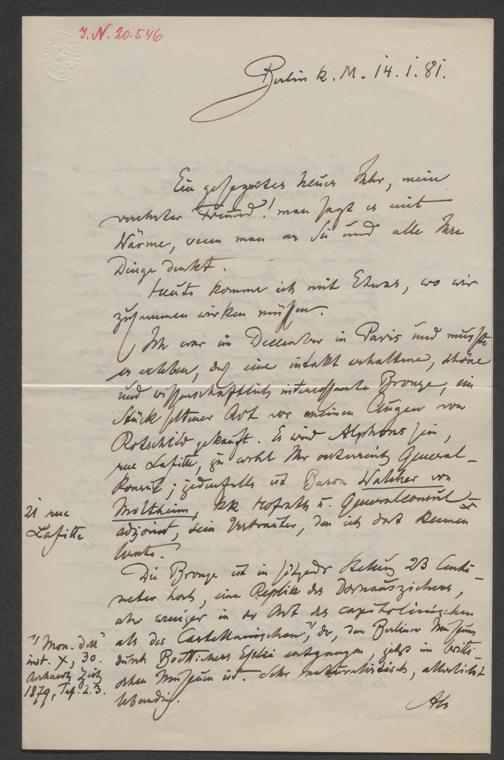 J. N. 20.546
Berlin k. M. 14. 1. 81.
Ein gesegnetes Neues Jahr, mein
verehrter Freund! man sagt es mit
Wärme, wenn man an Sie und alle Ihre
Dinge denkt.
Heute komme ich mit Etwas, wo wir
zusammen wirken müssen.
Ich war im December in Paris und musste
es erleben, daß eine intakt erhaltene, schöne
und wissenschaftlich interessante Bronze, ein
Stück seltener Art vor meinen Augen von
Rotschild gekauft. Es wird Alphons sein,
rue Lafitte, ja wohl Ihr österreich. General-
konsul; jedenfalls ist Baron Walcher von
Moltheim, kk. Hofrath u. Generalconsul-
adjoint, sein Vertrauter, den ich dort kennen
lernte.
21 rue
Lafitte
Die Bronze ist in sitzender Stellung 2/3 Centi-
meter hoch, eine Replik des Dornausziehers,
aber weniger in der Art des capitolinischen
als des Castellanischen, der, dem Berliner Museum
durch Boettichers Eselei entgangen, jetzt im briti-
schen Museum ist. Sehr naturalistisch, allerliebst
lebendig.
Mon. dell'
inst. X, 30.
Archaeol. Zeit.
1879, Taf. 2. 3.
Als